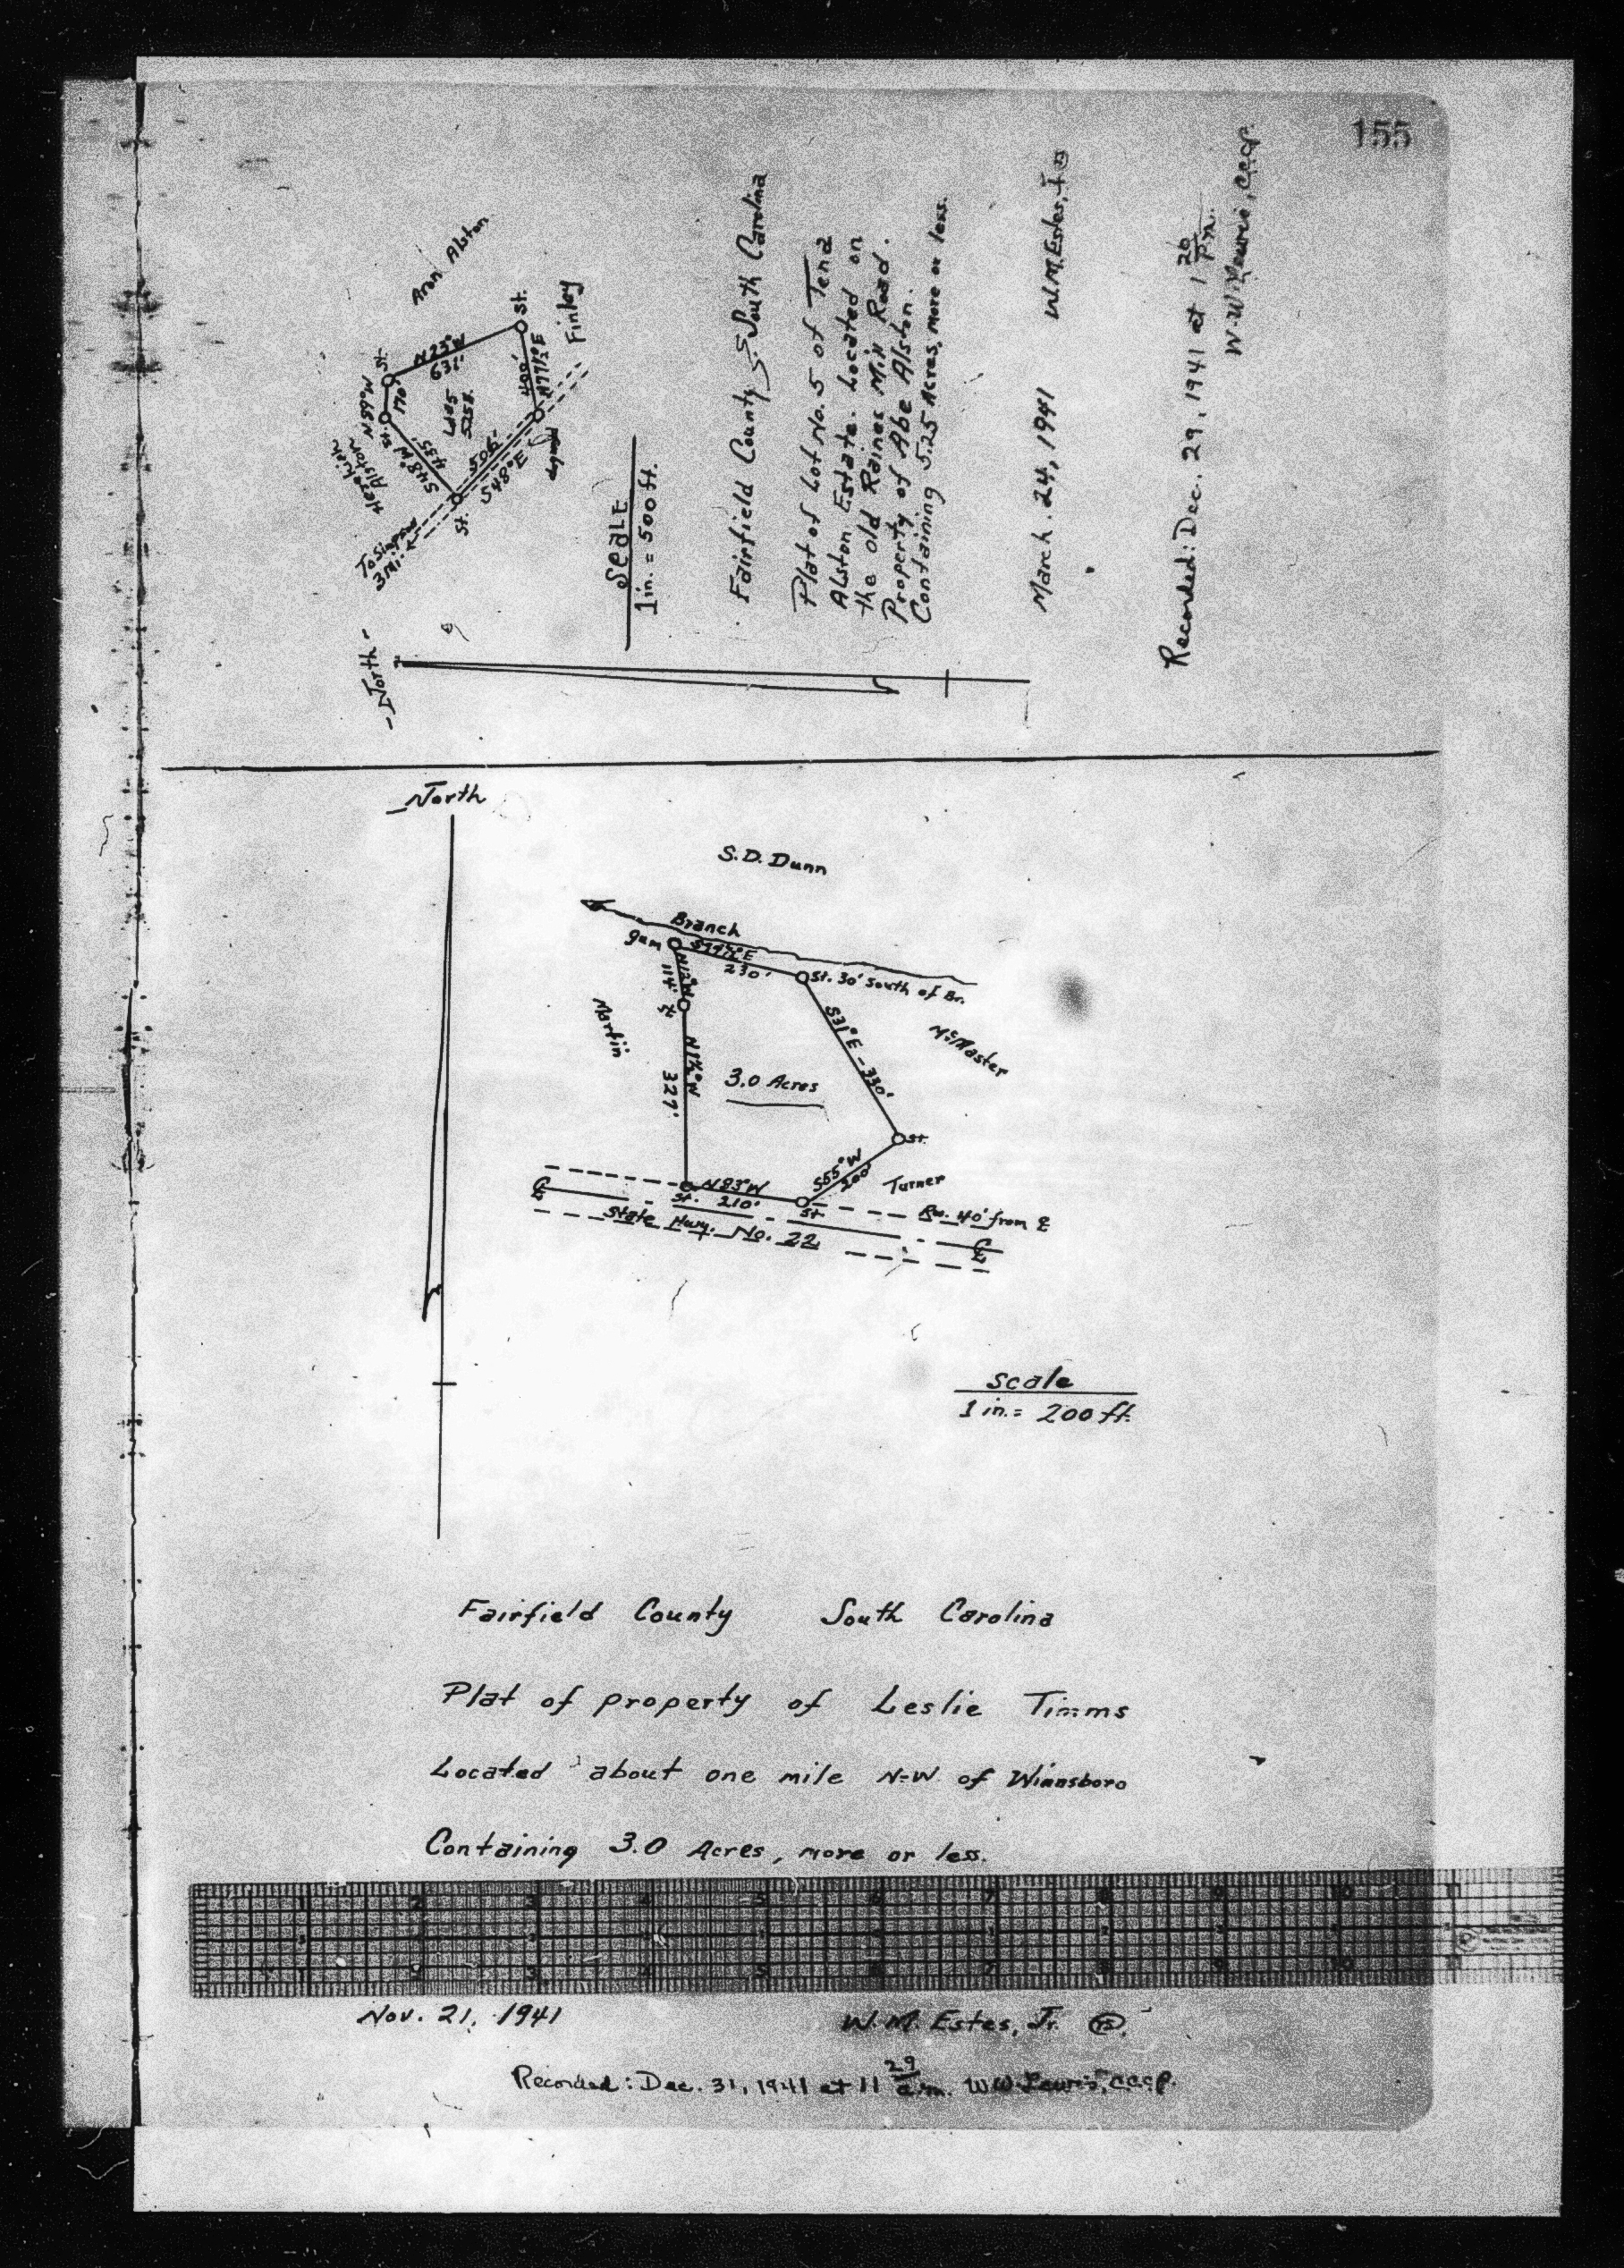 155
Aron Alston
St.
N 23° W
631'
St.
N 89° W
170'
St.
Hezekiah
Alston
S 48° W
435'
Lot 5
5.25 A.
400'
N 77 1/2° E
Finley
506'
S 48° E
St.
To Simpson
3 Mi.
-North-
Scale
1 in. = 500 ft.
Fairfield County South Carolina
Plat of Lot No. 5 of Tena
Alston Estate. Located on
the old Raines Mill Road.
Property of Abe Alston.
Containing 5.25 Acres, more or less.
March. 24, 1941 W.M. Estes, Jr
Recorded: Dec. 29, 1941 at 1 20 P.m.
W.W. Lewis, C.C.C.P.
North
S.D. Dunn
Branch
gum
S 77 1/2° E
230'
St. 30' South of Br.
N 12° W
114'
St.
Martin
N 1 1/2° W
327'
S 31° E - 330'
McMaster
3.0 Acres
St.
S 55° W
200'
Turner
N 83° W
St. 210'
St.
R/w. 40' from ℄
℄
State Hwy. No. 22
℄
Scale
1 in. = 200 ft.
Fairfield County South Carolina
Plat of property of Leslie Timms
Located about one mile N-W of Winnsboro
Containing 3.0 Acres, more or less.
1 2 3 4 5 6 7 8 9 10 11
1 2 3 4 5 6 7 8 9 10 11
Nov. 21, 1941
W. M. Estes, Jr. RS.
Recorded: Dec. 31, 1941 at 11 29 a.m. W.W. Lewis, C.C.C.P.